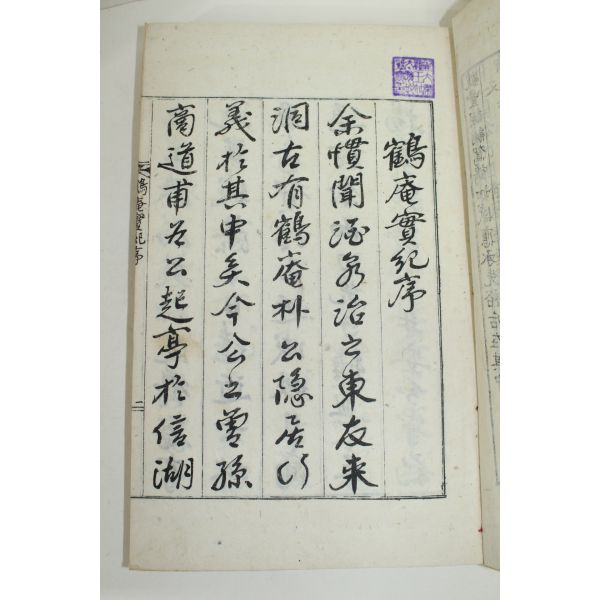 鶴庵實紀序
余慣聞酒泉治之東友來
洞古有鶴庵朴公隱居行
義於其中矣今公之曾孫
商道甫爲公起亭於信湖
鶴庵實紀序
二